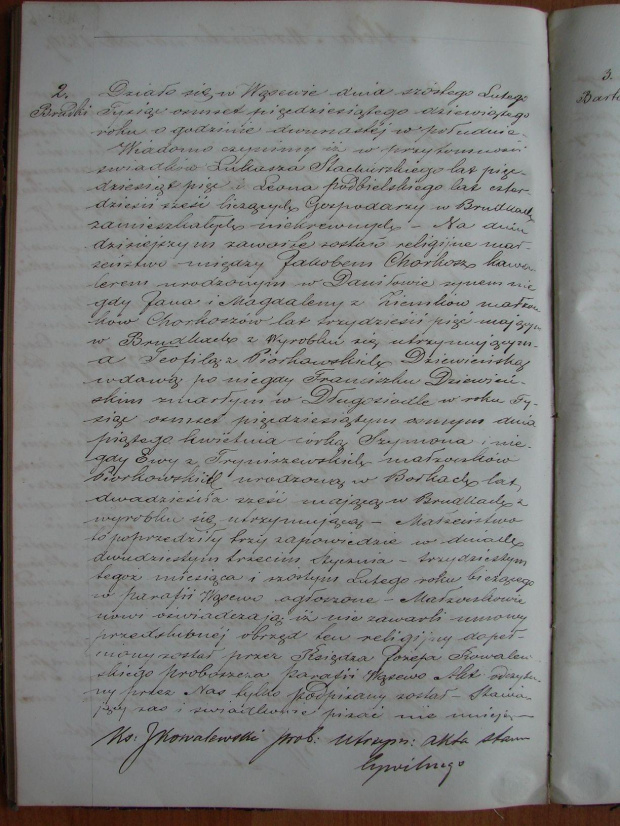 2.
Brudki
Działo się w Wąsewie dnia szóstego Lutego
Tysiąc ośmset pięćdziesiątego dziewiątego
roku o godzinie dwunastéj w południe.
Wiadomo czynimy iż w przytomności
świadków Łukasza Stachurskiego lat pięć-
dziesiąt pięć i Leona Podbielskiego lat czter-
dzieści sześć liczących Gospodarzy w Brudkach
zamieszkałych niekrewnych – Na dniu
dzisiejszym zawarte zostało religijne mał-
żeństwo między Jakóbem Chorkosz kawa-
lerem urodzonym w Daniłowie synem nie-
gdy Jana i Magdaleny z małżon-
ków Chorkoszów lat trzydzieści pięć mającym
w Brudkach z wyrobku się utrzymującym –
a Teofilą z Piórkowskich Dziewieńską
wdową po niegdy Franciszku Dziewień-
skim zmarłym w Długosiodle w roku Ty-
siąc ośmset pięćdziesiątym ósmym dnia
piątego kwietnia córką Szymona i nie-
gdy Ewy z Tryniszewskich małżonków
Piórkowskich urodzoną w Borkach lat
dwadzieścia sześć mającą w Brudkach z
wyrobku się utrzymującą – Małżeństwo
to poprzedziły trzy zapowiedzie w dniach
dwudziestym trzecim Stycznia – trzydziestym
tegoż miesiąca i szóstym Lutego roku bieżącego
w parafii Wąsewo ogłoszone – Małżonkowie
nowi oświadczają iż nie zawarli umowy
przedślubnéj obrząd ten religijny dopeł-
niony został przez Księdza Józefa Kowalew-
skiego proboszcza parafii Wąsewo Akt odczyta-
ny przez Nas tylko podpisany został – Stawia-
jący zaś i świadkowie pisać nie umieją –
Ks: J Kowalewski prob: utrzym: akta stanu
Cywilnego
3.
Barto